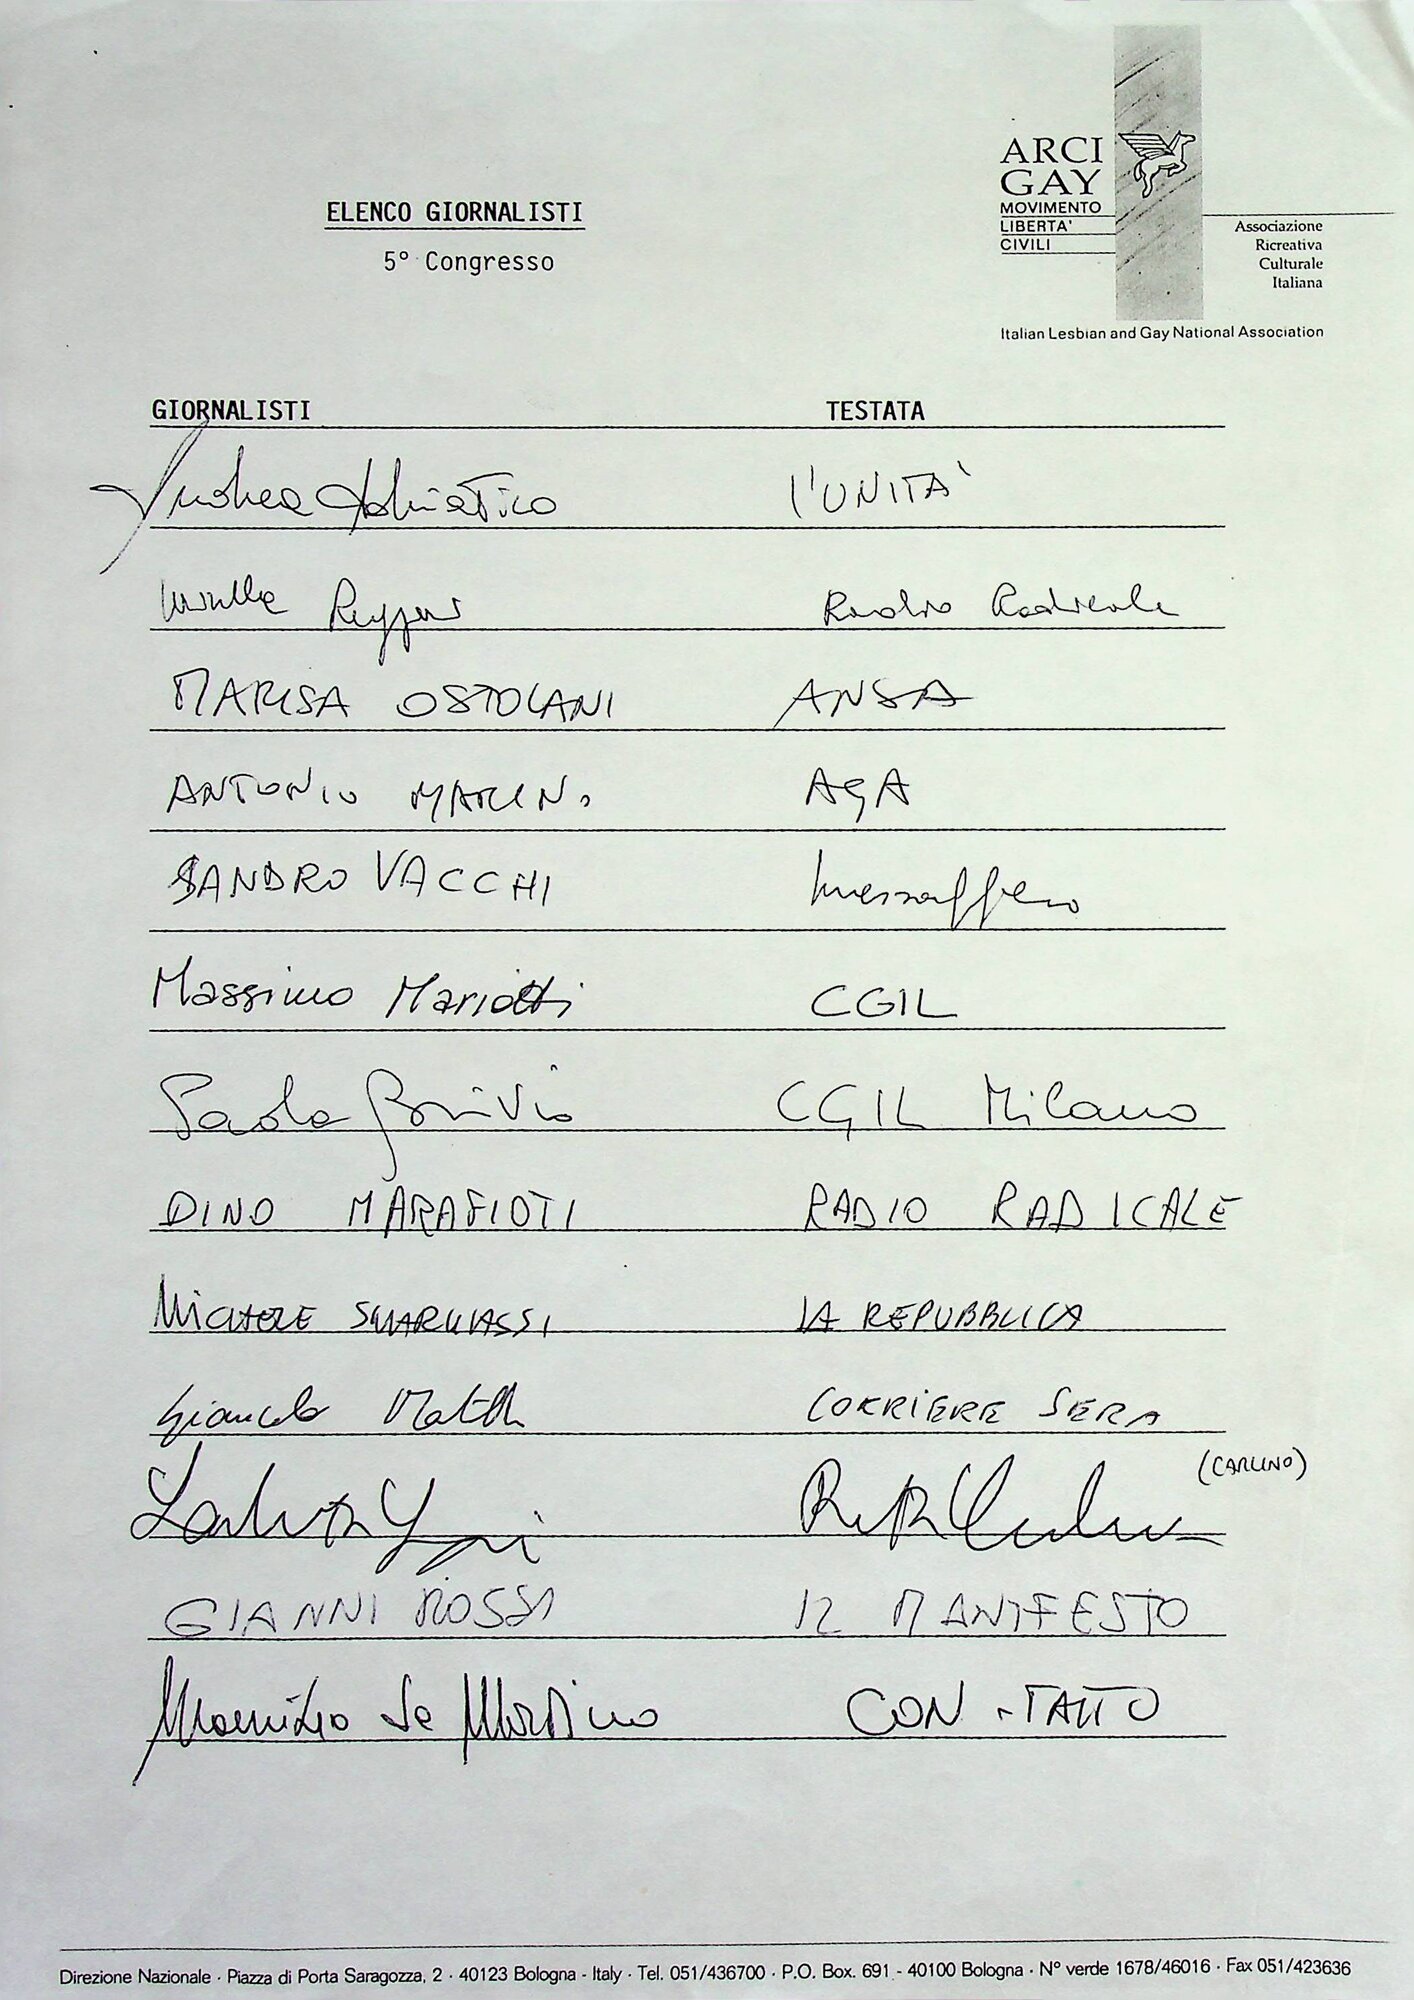 ARCI
GAY
MOVIMENTO
LIBERTA'
CIVILI
Associazione
Ricreativa
Culturale
Italiana
Italian Lesbian and Gay National Association
ELENCO GIORNALISTI
5° Congresso
GIORNALISTI TESTATA
Andrea Adriatico L'UNITÀ
Radio Radicale
MARISA OSTOLANI ANSA
ANTONIO AGA
SANDRO VACCHI Messaggero
Massimo Mariotti CGIL
Paola Brivio CGIL Milano
DINO MARAFIOTI RADIO RADICALE
MICHELE SMARGIASSI LA REPUBBLICA
CORRIERE SERA
(CARLINO)
GIANNI ROSSI IL MANIFESTO
Maurizio De Martino CON-TATTO
Direzione Nazionale · Piazza di Porta Saragozza, 2 · 40123 Bologna - Italy · Tel. 051/436700 · P.O. Box. 691 - 40100 Bologna · N° verde 1678/46016 · Fax 051/423636